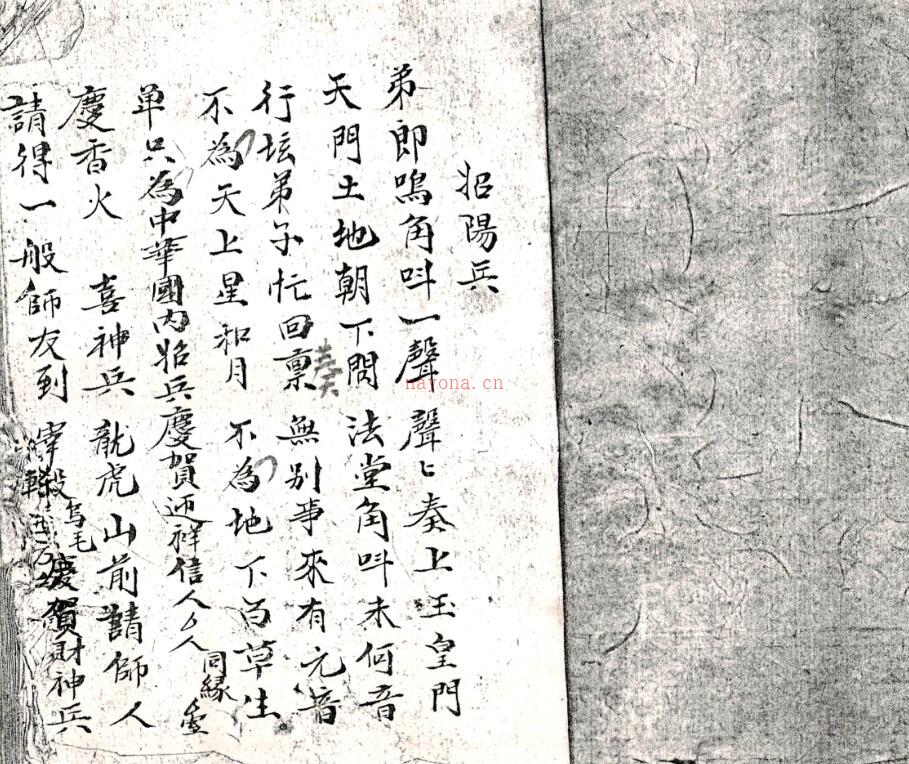 招陽兵
弟郎嗚角呌一聲 聲〻奏上玉皇門
天門土地朝下問 法堂角呌未何音
行坛弟子忙回稟奏 無别事來有元音
不為天上星和月 不為地下百草生
单只為中華國内招兵慶賀迊祥信人 人同縁
慶香火 喜神兵 龍虎山前請師人
請得一般師友到 宰殺烏毛 慶賀財神兵
nayona.cn